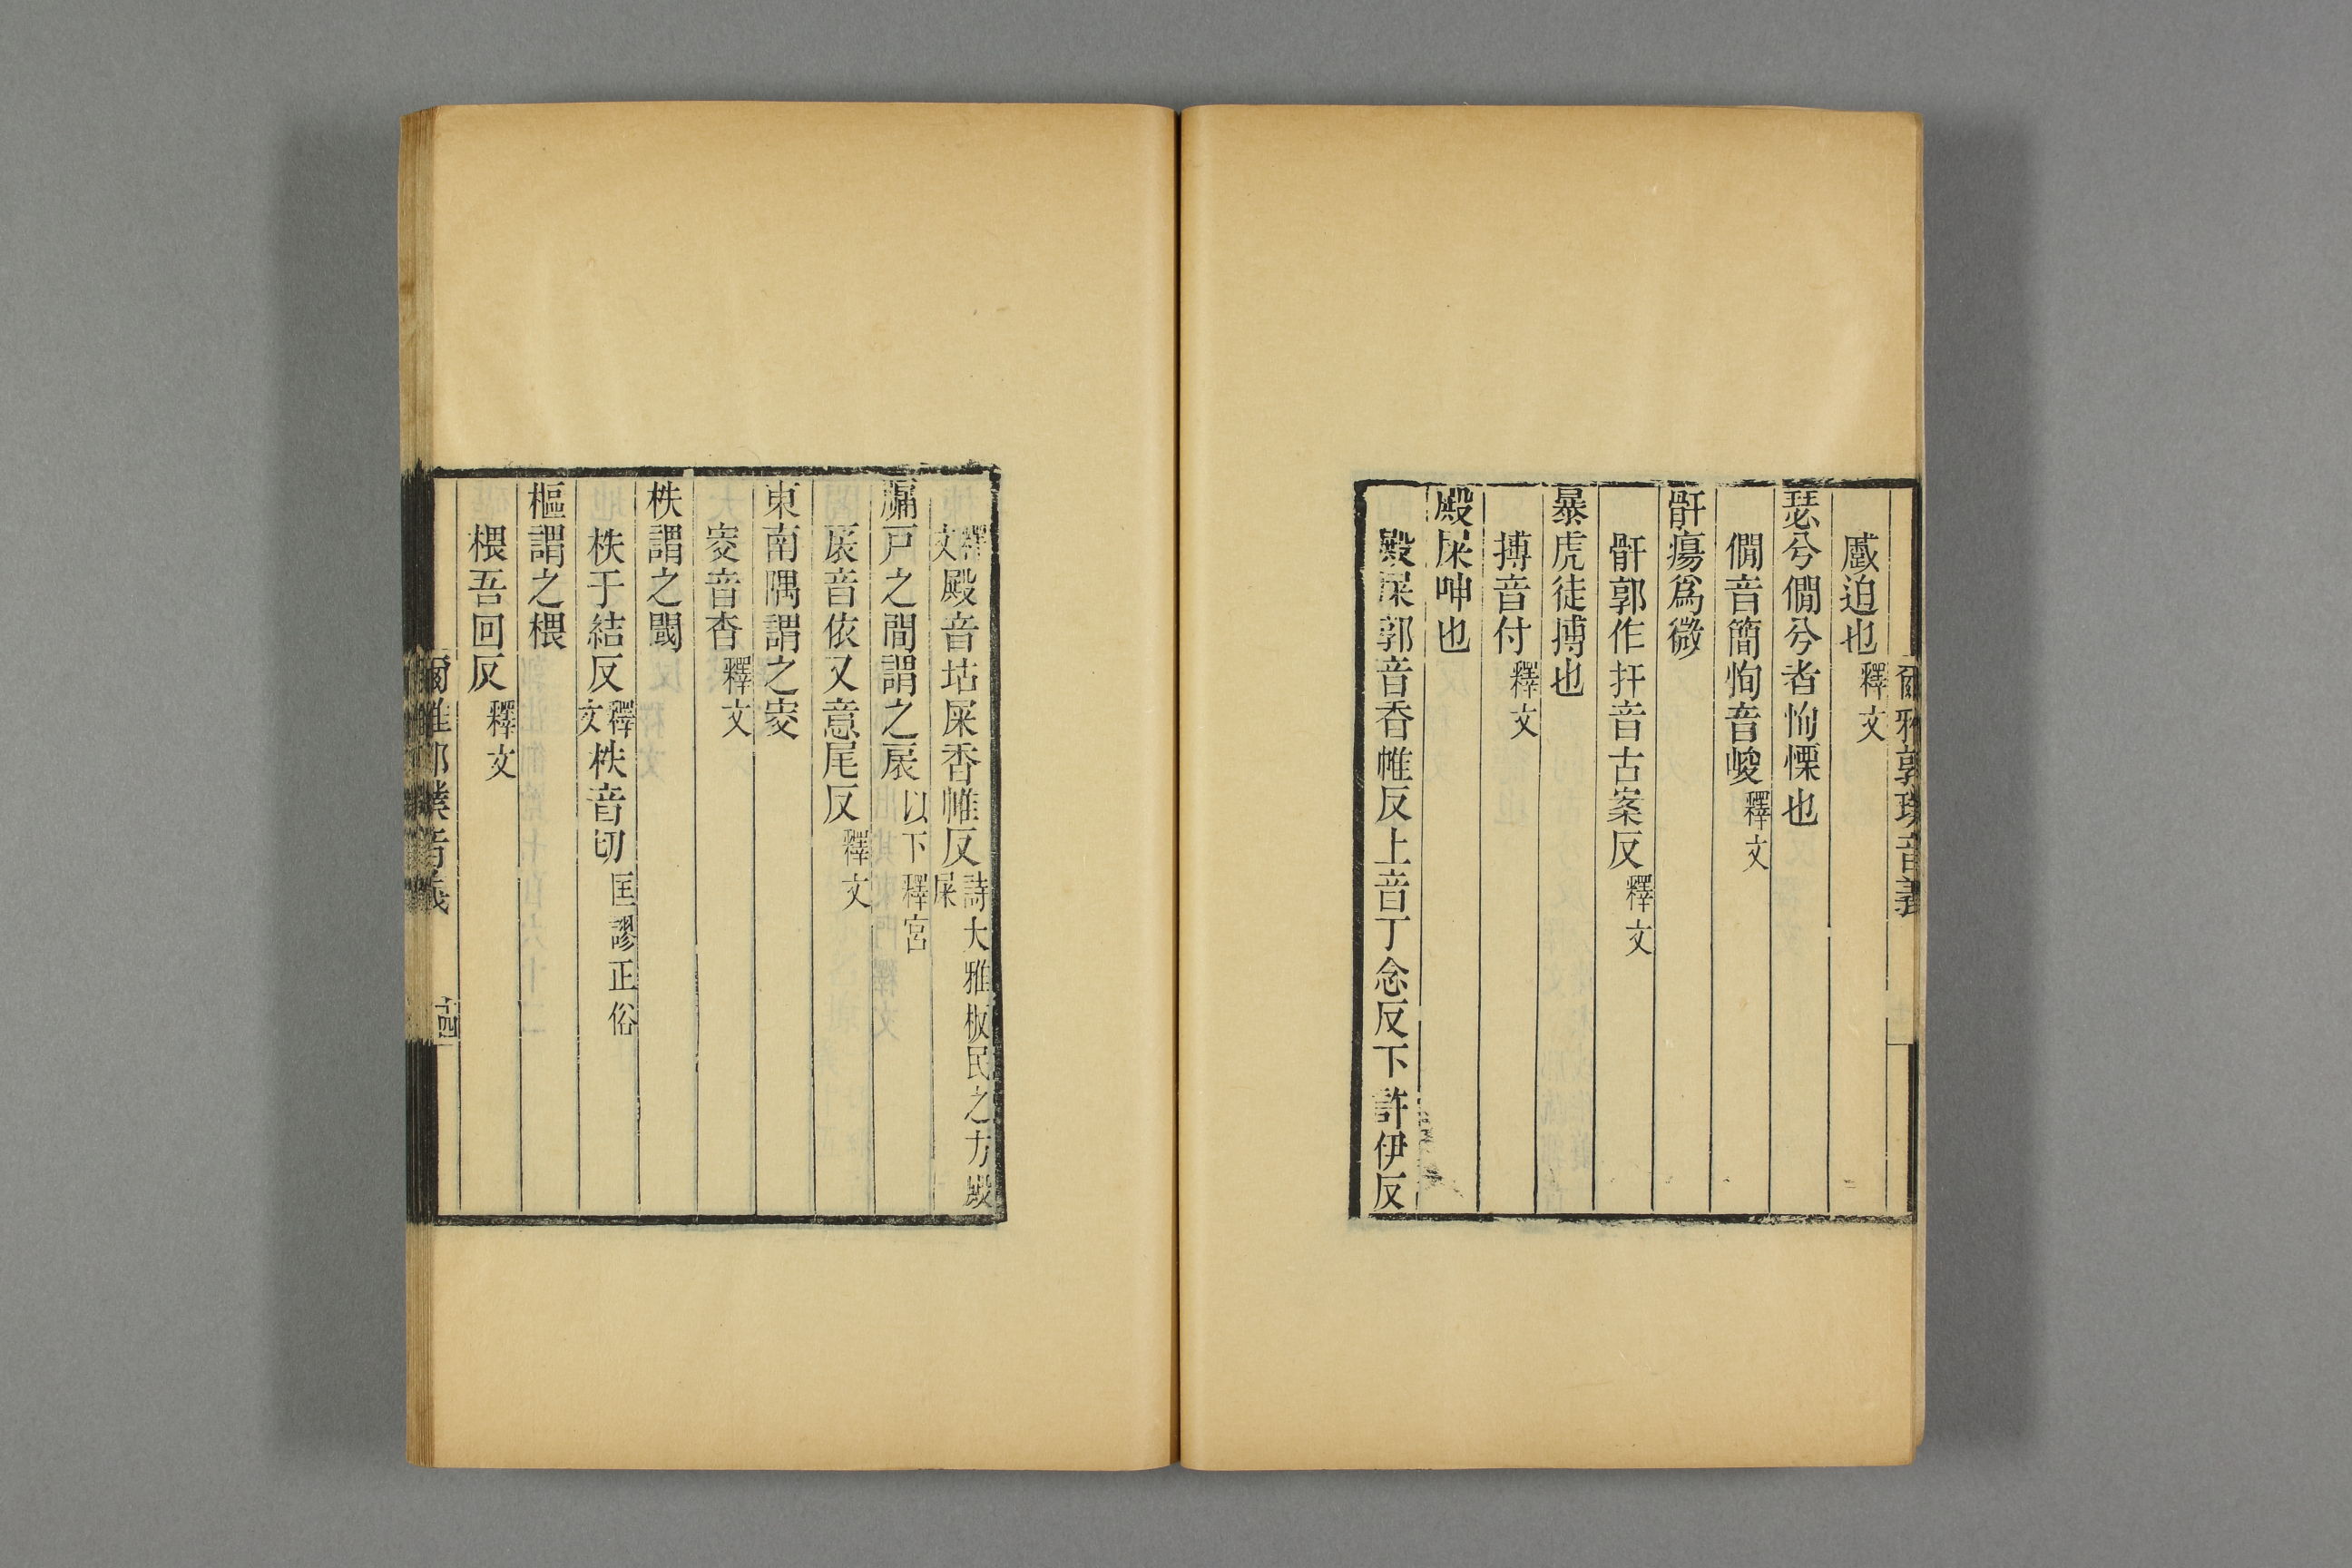 爾雅郭璞音義
蹙迫也釋文
瑟兮僩兮者恂慄也
僩音簡恂音峻釋文
骭瘍爲微
骭郭作扞音古案反釋文
暴虎徒搏也
搏音付釋文
殿屎呻也
殿屎郭音香惟反上音丁念反下許伊反
釋文殿音坫屎香惟反詩大雅板民之方殿屎
牖戸之閒謂之扆以下釋宮
扆音依又意尾反釋文
東南隅謂之窔
窔音杳釋文
柣謂之閾
柣于結反釋文柣音切匡謬正俗
樞謂之椳
椳吾回反釋文
爾雅郭璞音義
十四